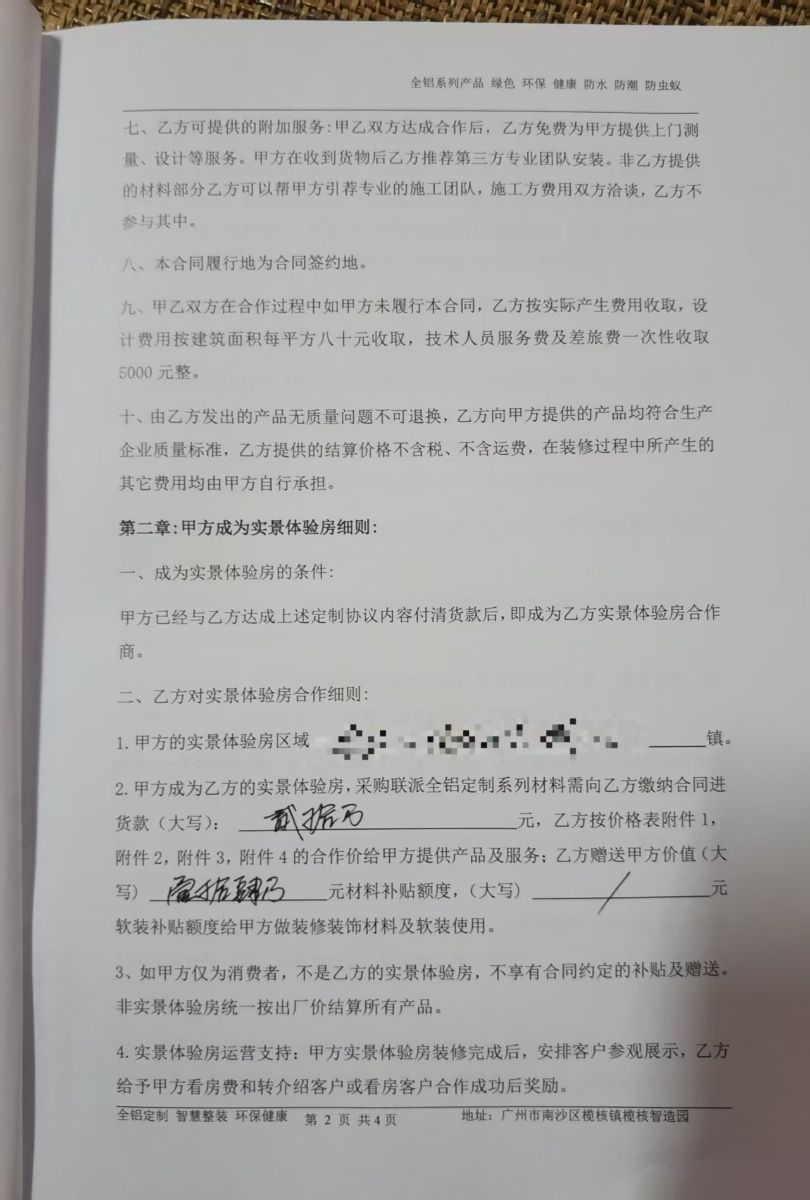 全铝系列产品 绿色 环保 健康 防水 防潮 防虫蚁
七、乙方可提供的附加服务:甲乙双方达成合作后，乙方免费为甲方提供上门测
量、设计等服务。甲方在收到货物后乙方推荐第三方专业团队安装。非乙方提供
的材料部分乙方可以帮甲方引荐专业的施工团队，施工方费用双方洽谈，乙方不
参与其中。
八、本合同履行地为合同签约地。
九、甲乙双方在合作过程中如甲方未履行本合同，乙方按实际产生费用收取，设
计费用按建筑面积每平方八十元收取，技术人员服务费及差旅费一次性收取
5000 元整。
十、由乙方发出的产品无质量问题不可退换，乙方向甲方提供的产品均符合生产
企业质量标准，乙方提供的结算价格不含税、不含运费，在装修过程中所产生的
其它费用均由甲方自行承担。
第二章:甲方成为实景体验房细则:
一、成为实景体验房的条件:
甲方已经与乙方达成上述定制协议内容付清货款后，即成为乙方实景体验房合作
商。
二、乙方对实景体验房合作细则:
1.甲方的实景体验房区域 ______镇。
2.甲方成为乙方的实景体验房，采购联派全铝定制系列材料需向乙方缴纳合同进
货款（大写）： 贰拾万 元，乙方按价格表附件 1，
附件 2，附件 3，附件 4 的合作价给甲方提供产品及服务；乙方赠送甲方价值（大
写） 拾肆万 元材料补贴额度，（大写） / 元
软装补贴额度给甲方做装修装饰材料及软装使用。
3、如甲方仅为消费者，不是乙方的实景体验房，不享有合同约定的补贴及赠送。
非实景体验房统一按出厂价结算所有产品。
4.实景体验房运营支持：甲方实景体验房装修完成后，安排客户参观展示，乙方
给予甲方看房费和转介绍客户或看房客户合作成功后奖励。
全铝定制 智慧整装 环保健康 第 2 页 共 4 页 地址：广州市南沙区榄核镇榄核智造园